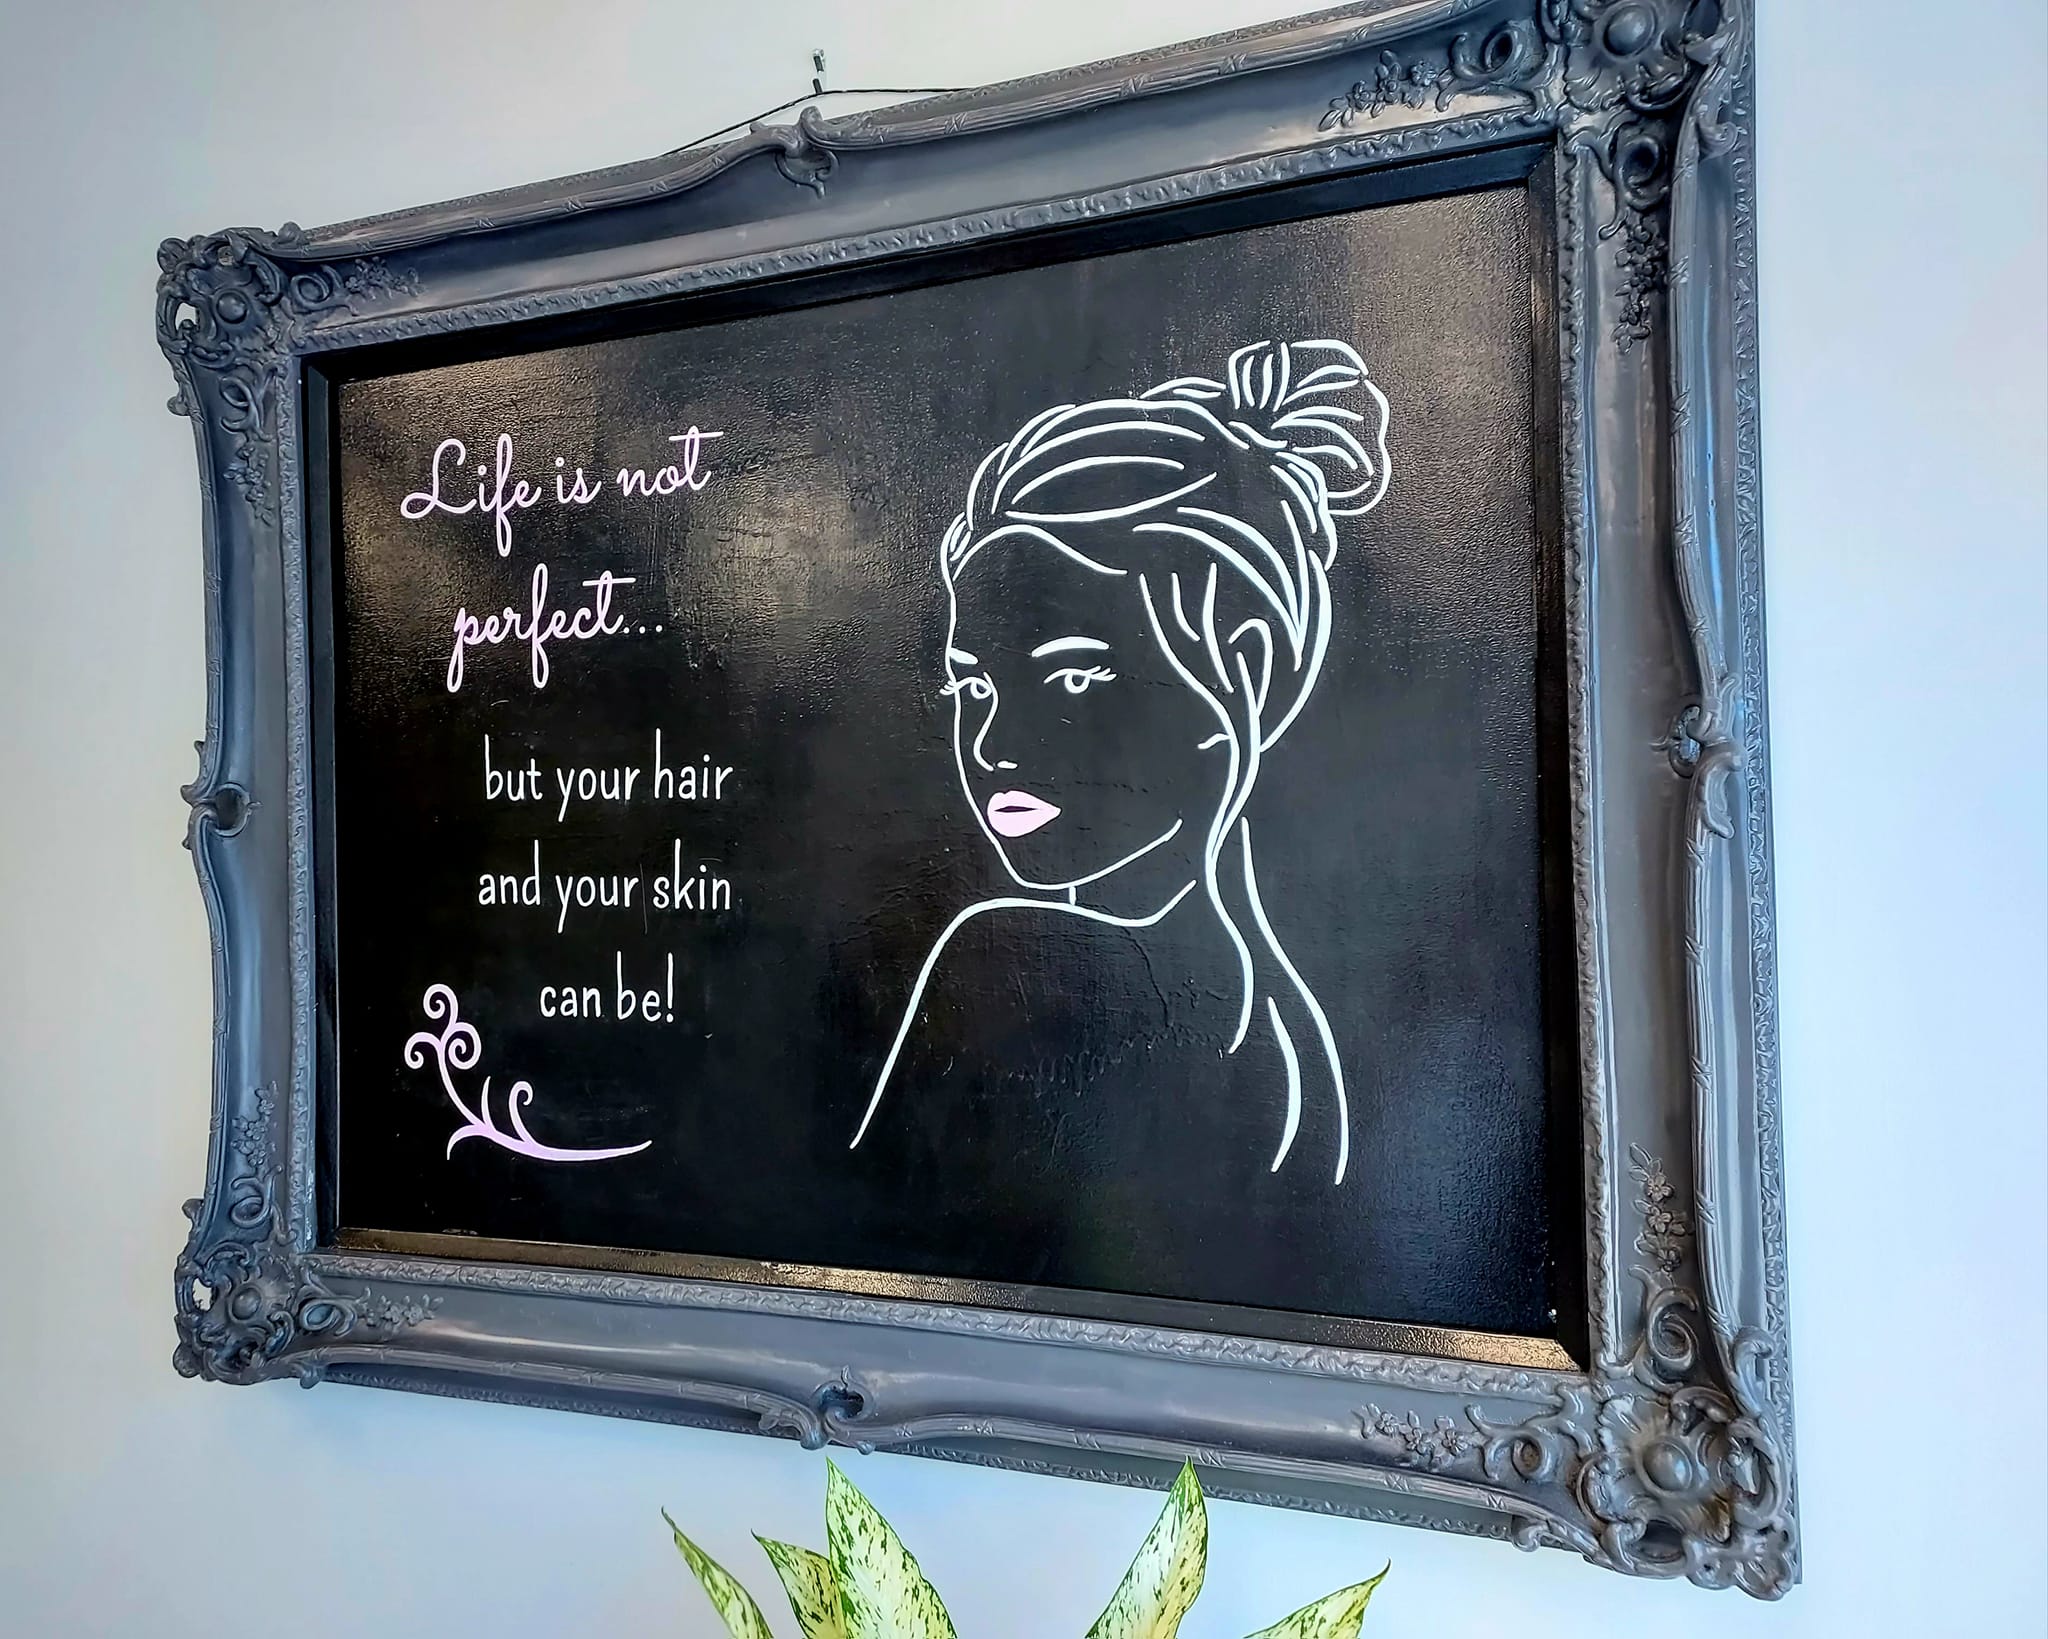 Life is not
perfect...
but your hair
and your skin
can be!